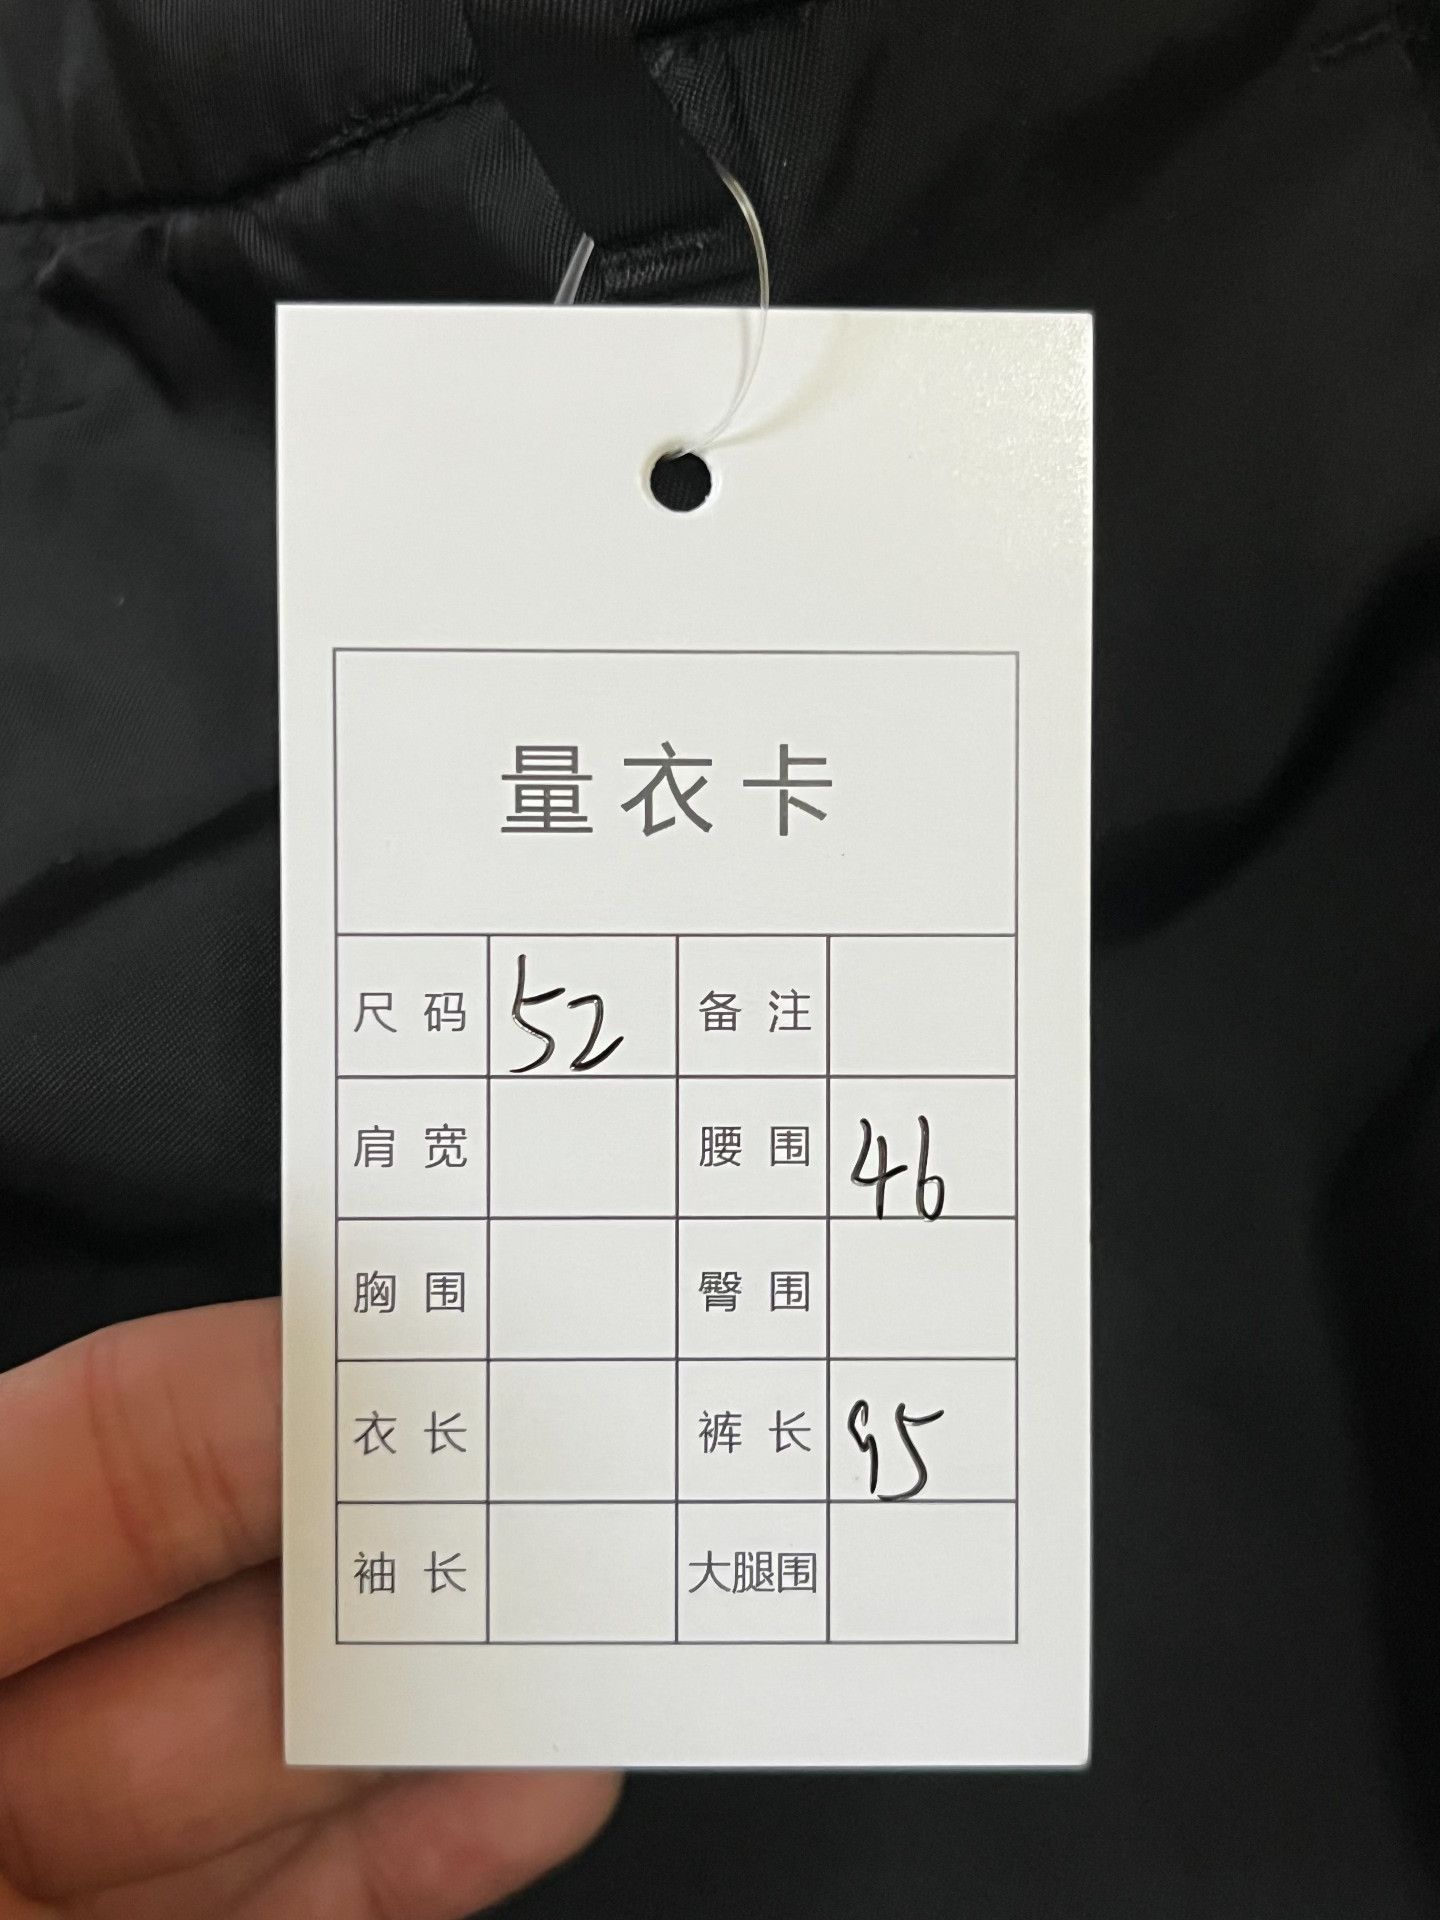 量衣卡
尺码 52 备注
肩宽 腰围 46
胸围 臀围
衣长 裤长 95
袖长 大腿围